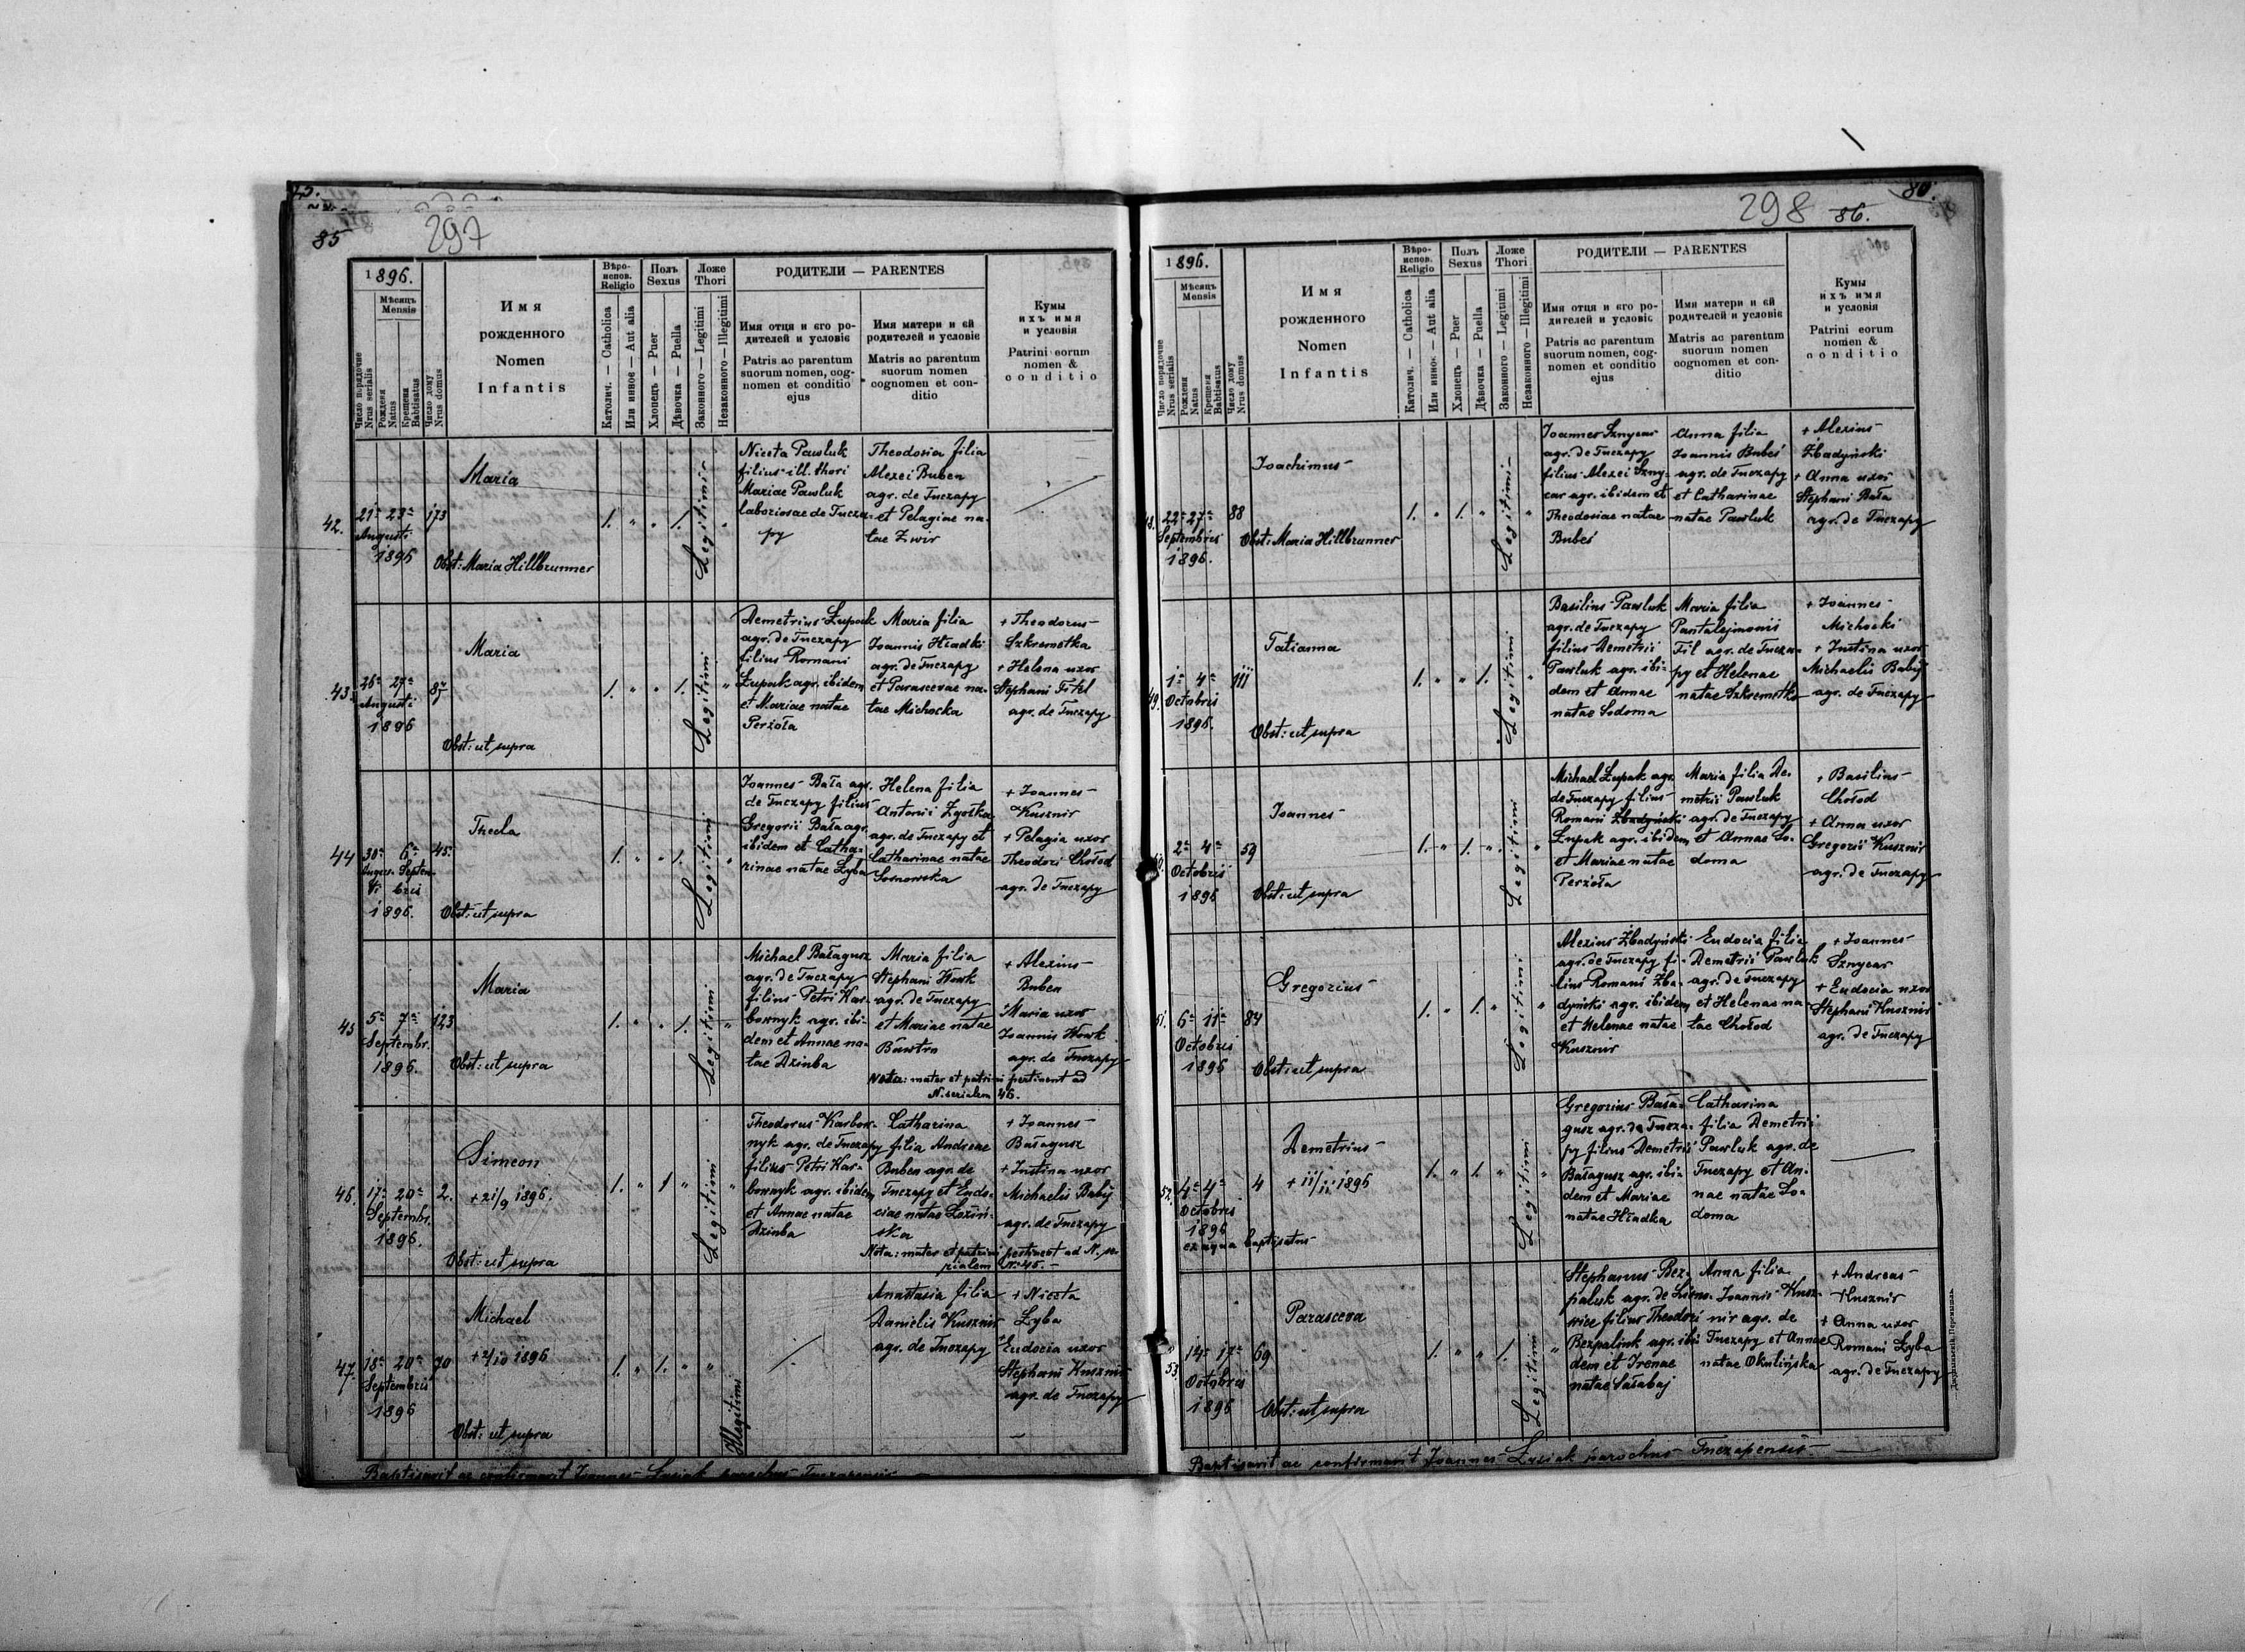 85
297
1896.
Мѣсяцъ
Mensis
Число порядочне
Nrus serialis
Рожденя
Natus
Крещеня
Babtisatus
Число дому
Nrus domus
Имя
рожденного
Nomen
Infantis
Вѣро-
испов.
Religio
Католич. — Catholica
Или инноє — Aut alia
Полъ
Sexus
Хлопець — Puer
Дѣвочка — Puella
Ложе
Thori
Законного — Legitimi
Незаконного — Illegitimi
РОДИТЕЛИ — PARENTES
Имя отця и єго ро-
дителей и условіє
Patris ac parentum
suorum nomen, cog-
nomen et conditio
ejus
Имя матери и єй
родителей и условіє
Matris ac parentum
suorum nomen
cognomen et con-
ditio
Кумы
ихъ имя
и условія
Patrini eorum
nomen &
conditio
42.
21. 23.
Augusti
1896
173
Maria
Obst: Maria Hillbrunner
1. " " 1.
Legitimi
"
Niceta Pawluk
filius ill. thori
Mariae Pawluk
laboriosae de Tucza-
py
Theodosia filia
Alexei Buben
agr. de Tuczapy
et Pelagiae na-
tae Zwir
43.
26. 27.
Augusti
1896
87
Maria
Obst: ut supra
1. " " 1.
Legitimi
"
Demetrius Łupak
agr. de Tuczapy
filius Romani
Łupak agr. ibidem
et Mariae natae
Perżoła
Maria filia
Joannis Hładki
agr. de Tuczapy
et Parascevae na-
tae Michocka
+ Theodorus
Szkremetka
+ Helena uxor
Stephani Titel
agr. de Tuczapy
44
30. 6.
Augu- Septem-
sti bris
1896.
45.
Thecla
Obst: ut supra
1. " " 1.
Legitimi
"
Joannes Bała agr.
de Tuczapy filius
Gregorii Bała agr.
ibidem et Catha-
rinae natae Zyba
Helena filia
Antonii Zgołka
agr. de Tuczapy et
Catharinae natae
Sosnowska
+ Joannes
Kusznir
+ Pelagia uxor
Theodori Chołod
agr. de Tuczapy
45
5. 7.
Septembr.
1896.
123
Maria
Obst: ut supra
1. " " 1.
Legitimi
"
Michael Bałagusz
agr. de Tuczapy
filius Petri Kar-
bownyk agr. ibi-
dem et Annae na-
tae Dziuba
Maria filia
Stephani Howk
agr. de Tuczapy
et Mariae natae
+ Alexius
Buben
+ Maria uxor
Joannis Howk
agr. de Tuczapy
Nota: mater et patrini pertinent ad
N. serialem 46.
46.
17. 20.
Septembr.
1896.
2.
Simeon
+ 21/9 1896.
Obst: ut supra
1. " 1 "
Legitimi
"
Theodorus Karbow-
nyk agr. de Tuczapy
filius Petri Kar-
bownyk agr. ibidem
et Annae natae
Dziuba
Catharina
filia Andreae
Buben agr. de
Tuczapy et Eudo-
ciae natae Łoziń-
ska
+ Joannes
Bałagusz
+ Justina uxor
Michaelis Babij
agr. de Tuczapy
Nota: mater et patrini pertinent ad N. se-
rialem Nr. 45.
47.
18. 20.
Septembris
1896
70
Michael
Obst: ut supra
1. " 1. " "
Illegitimi
Anastasia filia
Danielis Kusznir
agr. de Tuczapy
+ Niceta
Zyba
+ Eudocia uxor
Stephani Kusznir
agr. de Tuczapy
Baptisavit ac confirmavit Joannes Łysiak parochus Tuczapensis
298
86.
80.
1896.
Мѣсяцъ
Mensis
Число порядочне
Nrus serialis
Рожденя
Natus
Крещеня
Babtisatus
Число дому
Nrus domus
Имя
рожденного
Nomen
Infantis
Вѣро-
испов.
Religio
Католич. — Catholica
Или иннок — Aut alia
Полъ
Sexus
Хлопець — Puer
Дѣвочка — Puella
Ложе
Thori
Законного — Legitimi
Незаконного — Illegitimi
РОДИТЕЛИ — PARENTES
Имя отця и єго ро-
дителей и условіє
Patris ac parentum
suorum nomen, cog-
nomen et conditio
ejus
Имя матери и єй
родителей и условіє
Matris ac parentum
suorum nomen
cognomen et con-
ditio
Кумы
ихъ имя
и условія
Patrini eorum
nomen &
conditio
22. 27.
Septembris
1896.
88
Joachimus
Obst: Maria Hillbrunner
1. " 1. "
Legitimi
"
Joannes Sznycar
agr. de Tuczapy
filius Alexei Szny-
car agr. ibidem et
Theodosiae natae
Bubeś
Anna filia
Joannis Bubeś
agr. de Tuczapy
et Catharinae
natae Pawluk
+ Alexius
Zbadyński
+ Anna uxor
Stephani Bała
agr. de Tuczapy
49.
1. 4.
Octobris
1896.
111
Tatianna
Obst: ut supra
1. " " 1.
Legitimi
"
Basilius Pawluk
agr. de Tuczapy
filius Demetrii
Pawluk agr. ibi-
dem et Annae
natae Sodoma
Maria filia
Pantalejmonii
Til agr. de Tucza-
py et Helenae
natae Szkremetko
+ Joannes
Michocki
+ Justina uxor
Michaelis Babij
agr. de Tuczapy
2. 4.
Octobris
1896
59
Joannes
Obst: ut supra
1. " 1. "
Legitimi
"
Michael Łupak agr.
de Tuczapy filius
Romani Zbadyński
Łupak agr. ibidem
et Mariae natae
Perżoła
Maria filia De-
metrii Pawluk
agr. de Tuczapy
et Annae So-
doma
+ Basilius
Chołod
+ Anna uxor
Gregorii Kusznir
agr. de Tuczapy
51.
6. 11.
Octobris
1896
84
Gregorius
Obst: ut supra
1. " 1. "
Legitimi
"
Alexius Zbadyński
agr. de Tuczapy fi-
lius Romani Zba-
dyński agr. ibidem
et Helenae natae
Kusznir
Eudocia filia
Demetrii Pawluk
agr. de Tuczapy
et Helenae na-
tae Chołod
+ Joannes
Sznycar
+ Eudocia uxor
Stephani Kusznir
agr. de Tuczapy
52.
4. 4.
Octobris
1896
ex aqua baptisatus
4
Demetrius
+ 11/11 1896
1. " 1. "
Legitimi
"
Gregorius Bała-
gusz agr. de Tucza-
py filius Demetrii
Bałagusz agr. ibi-
dem et Mariae
natae Hładka
Catharina
filia Demetrii
Pawluk agr. de
Tuczapy et An-
nae natae So-
doma
53.
14. 17.
Octobris
1896
69
Parasceva
Obst: ut supra
1. " " 1.
Legitimi
"
Stephanus Bez-
paluk agr. de
filius Theodori
Bezpaluk agr. ibi
dem et Irenae
natae Sałabaj
Anna filia
Joannis Kusz-
nir agr. de
Tuczapy et Annae
natae Okulińska
+ Andreas
Kusznir
+ Anna uxor
Romani Zyba
agr. de Tuczapy
Baptisavit ac confirmavit Joannes Łysiak parochus Tuczapensis